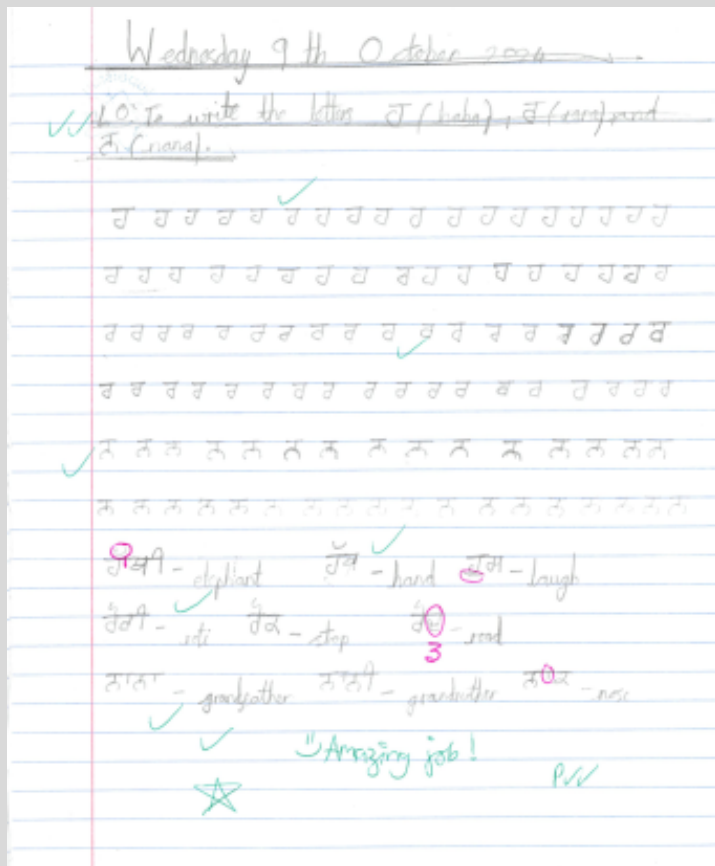 Wednesday 9th October 2024
LO: To write the letters ਹ (haha), ਰ (rara) and
ਨ (nana).
ਹ ਹ ਹ ਹ ਹ ਹ ਹ ਹ ਹ ਹ ਹ ਹ ਹ ਹ ਹ ਹ ਹ ਹ
ਹ ਹ ਹ ਹ ਹ ਹ ਹ ਹ ਹ ਹ ਹ ਹ ਹ ਹ ਹ ਹ ਹ
ਰ ਰ ਰ ਰ ਰ ਰ ਰ ਰ ਰ ਰ ਰ ਰ ਰ ਰ ਰ ਰ ਰ ਰ
ਰ ਰ ਰ ਰ ਰ ਰ ਰ ਰ ਰ ਰ ਰ ਰ ਰ ਰ ਰ ਰ ਰ ਰ
ਨ ਨ ਨ ਨ ਨ ਨ ਨ ਨ ਨ ਨ ਨ ਨ ਨ ਨ ਨ ਨ
ਨ ਨ ਨ ਨ ਨ ਨ ਨ ਨ ਨ ਨ ਨ ਨ ਨ ਨ ਨ ਨ ਨ ਨ
ਹਾਥੀ - elephant ਹੱਥ - hand ਹਸ - laugh
- roti ਰੋਕ - stop - road
3
ਨਾਨਾ - grandfather ਨਾਨੀ - grandmother ਨੱਕ - nose
Amazing job!